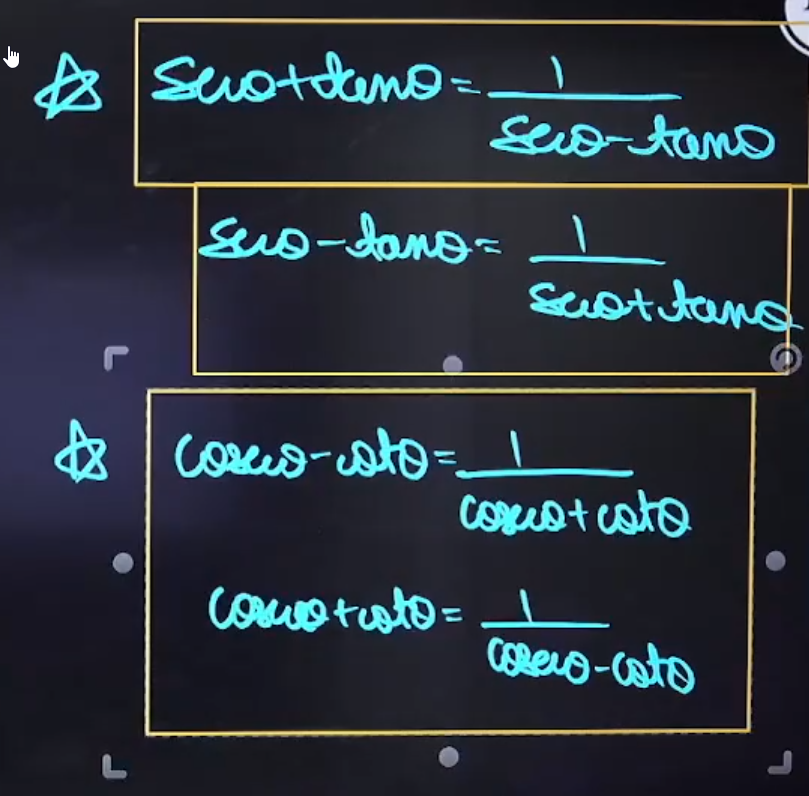 secθ+tanθ = 1/(secθ-tanθ)
secθ-tanθ = 1/(secθ+tanθ)
cosecθ-cotθ = 1/(cosecθ+cotθ)
cosecθ+cotθ = 1/(cosecθ-cotθ)